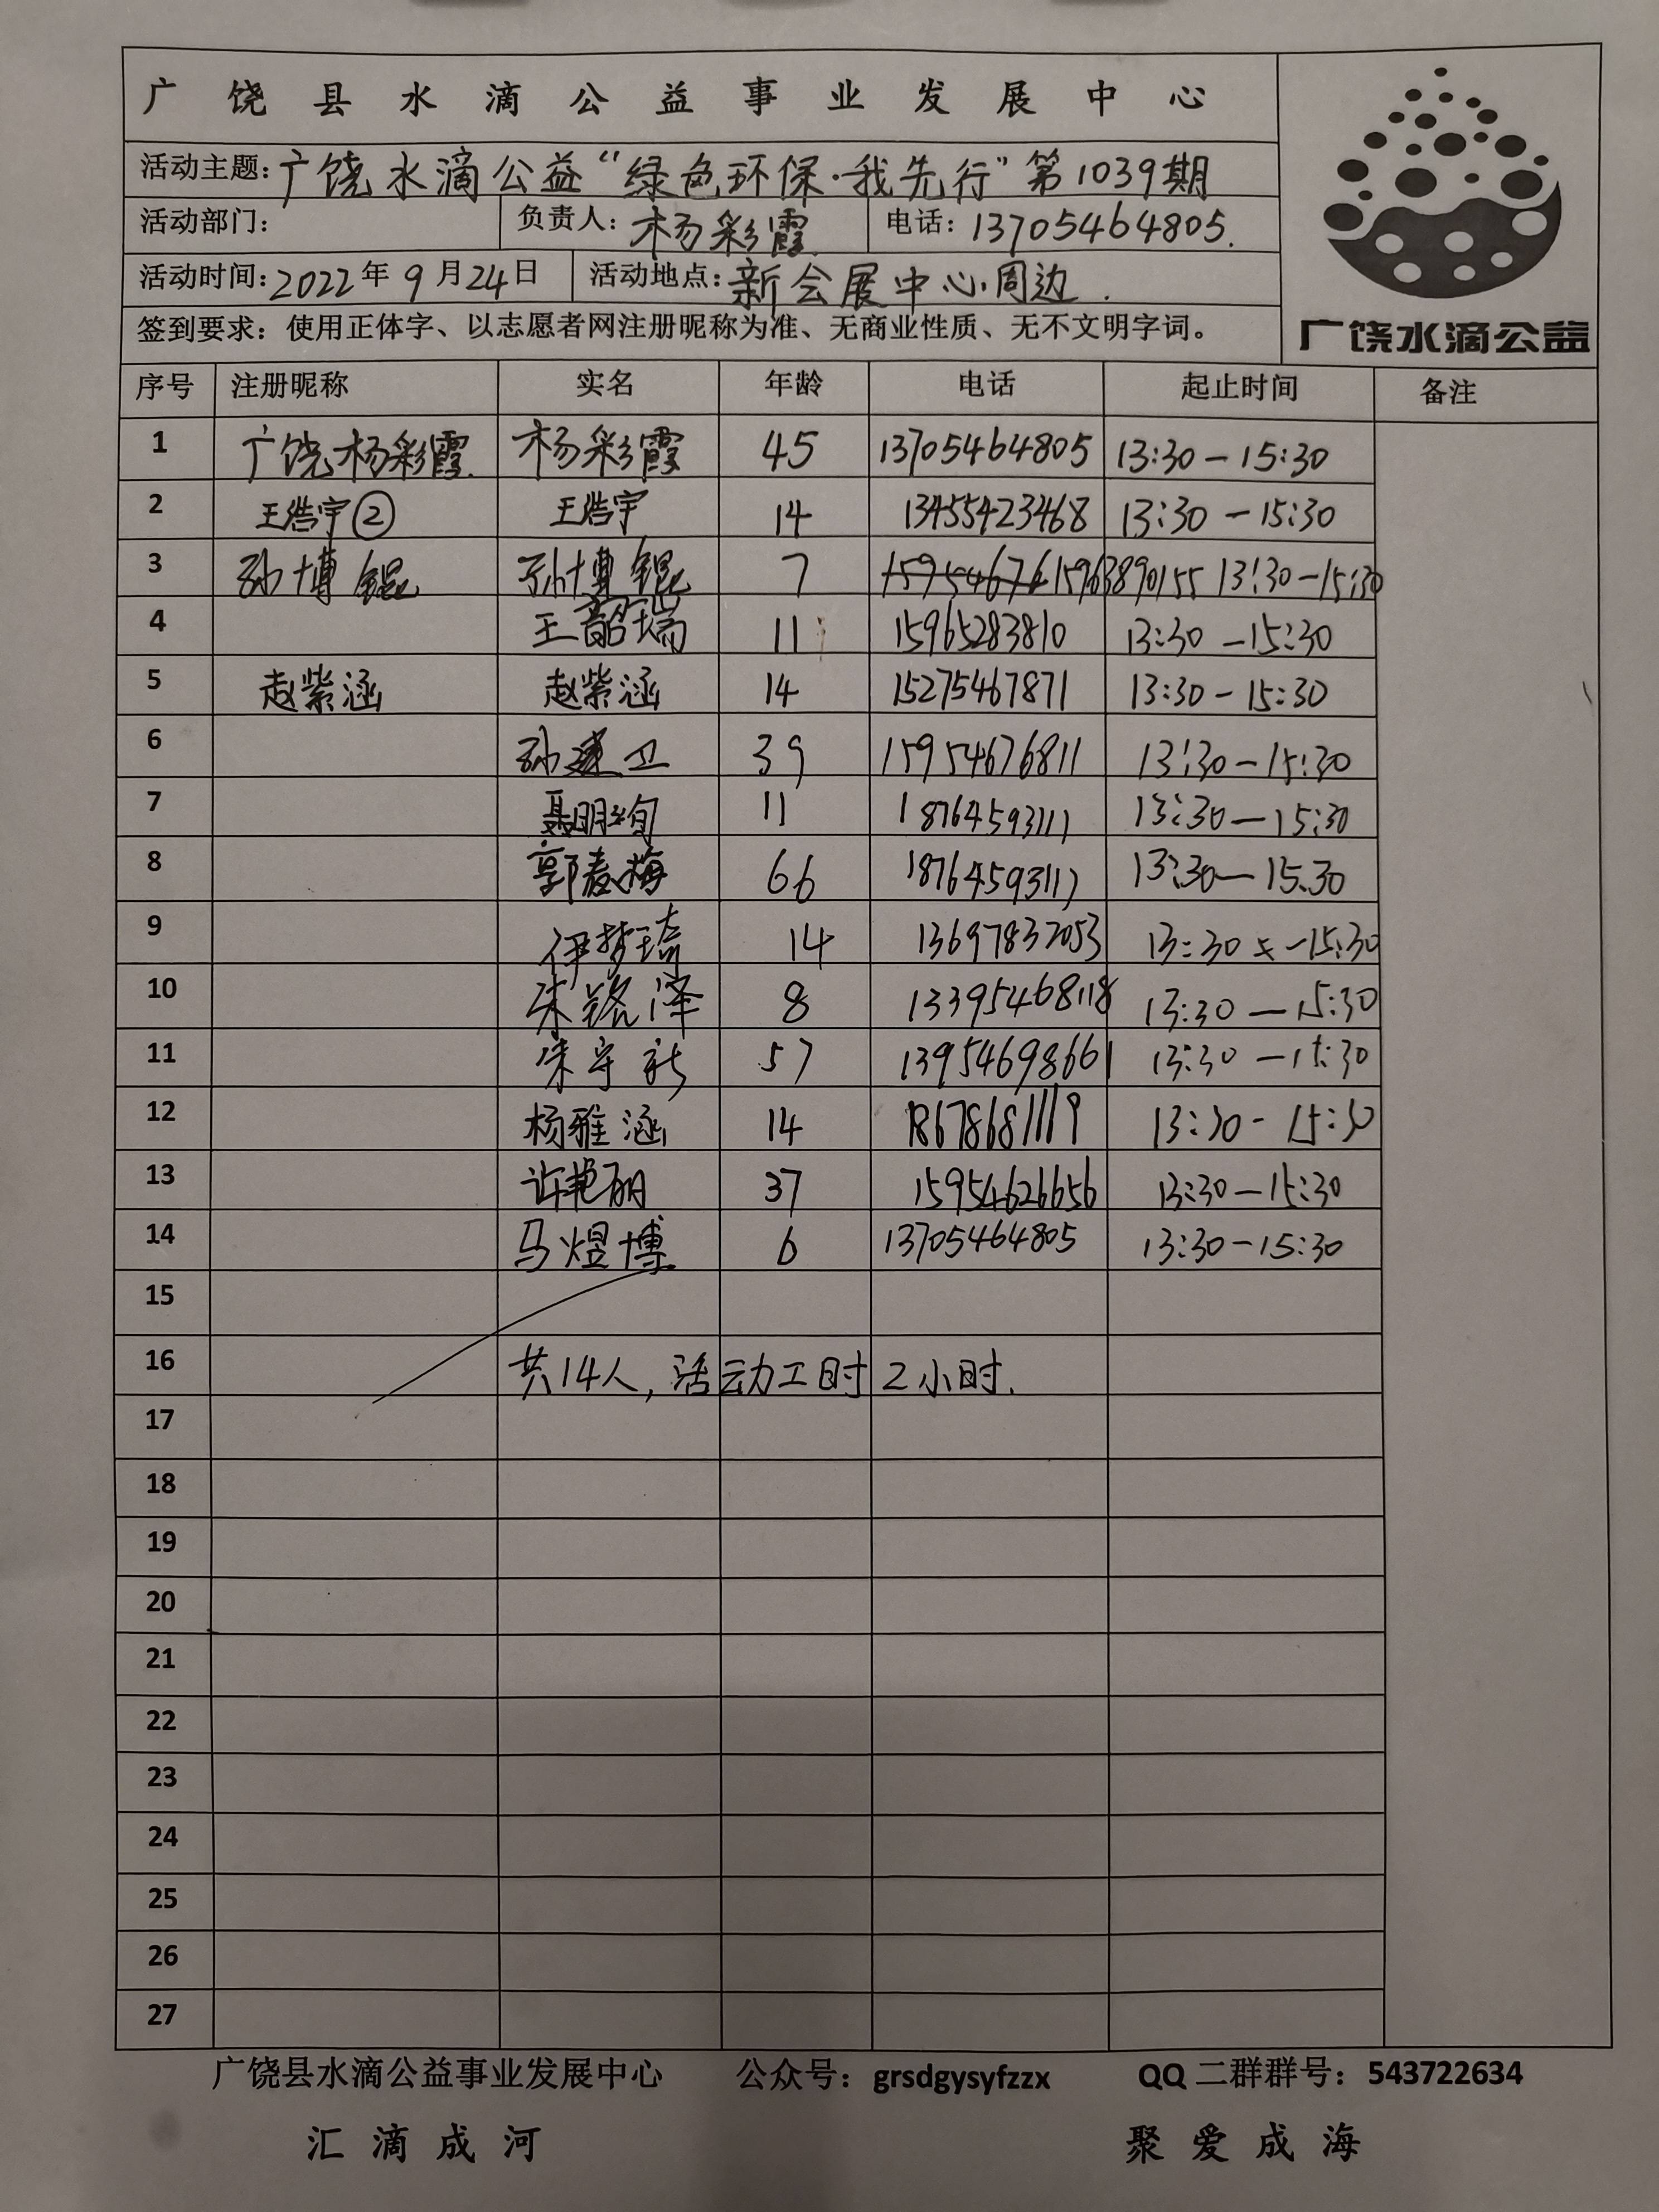 广饶县水滴公益事业发展中心
活动主题:广饶水滴公益“绿色环保·我先行”第1039期
活动部门: 负责人:杨彩霞 电话:13705464805.
活动时间:2022年9月24日 活动地点:新会展中心周边.
签到要求：使用正体字、以志愿者网注册昵称为准、无商业性质、无不文明字词。
广饶水滴公益
序号 注册昵称 实名 年龄 电话 起止时间 备注
1 广饶杨彩霞 杨彩霞 45 13705464805 13:30-15:30
2 王浩宇② 王浩宇 14 13455423468 13:30-15:30
3 孙博锟 孙博锟 7 15963890155 13:30-15:30
4 王韶瑞 11 15965283810 13:30-15:30
5 赵紫涵 赵紫涵 14 15275467871 13:30-15:30
6 孙建卫 39 15954676811 13:30-15:30
7 聂明 11 18764593117 13:30-15:30
8 郭麦梅 66 18764593117 13:30-15.30
9 伊梦琦 14 13697837053 13:30-15:30
10 朱铭泽 8 13395468118 13:30-15:30
11 朱守新 57 13954698661 13:30-15:30
12 杨雅涵 14 18678681119 13:30-15:30
13 许艳丽 37 15954626656 13:30-15:30
14 马煜博 6 13705464805 13:30-15:30
15
16 共14人,活动工时2小时.
17
18
19
20
21
22
23
24
25
26
27
广饶县水滴公益事业发展中心 公众号：grsdgysyfzzx QQ二群群号：543722634
汇滴成河 聚爱成海